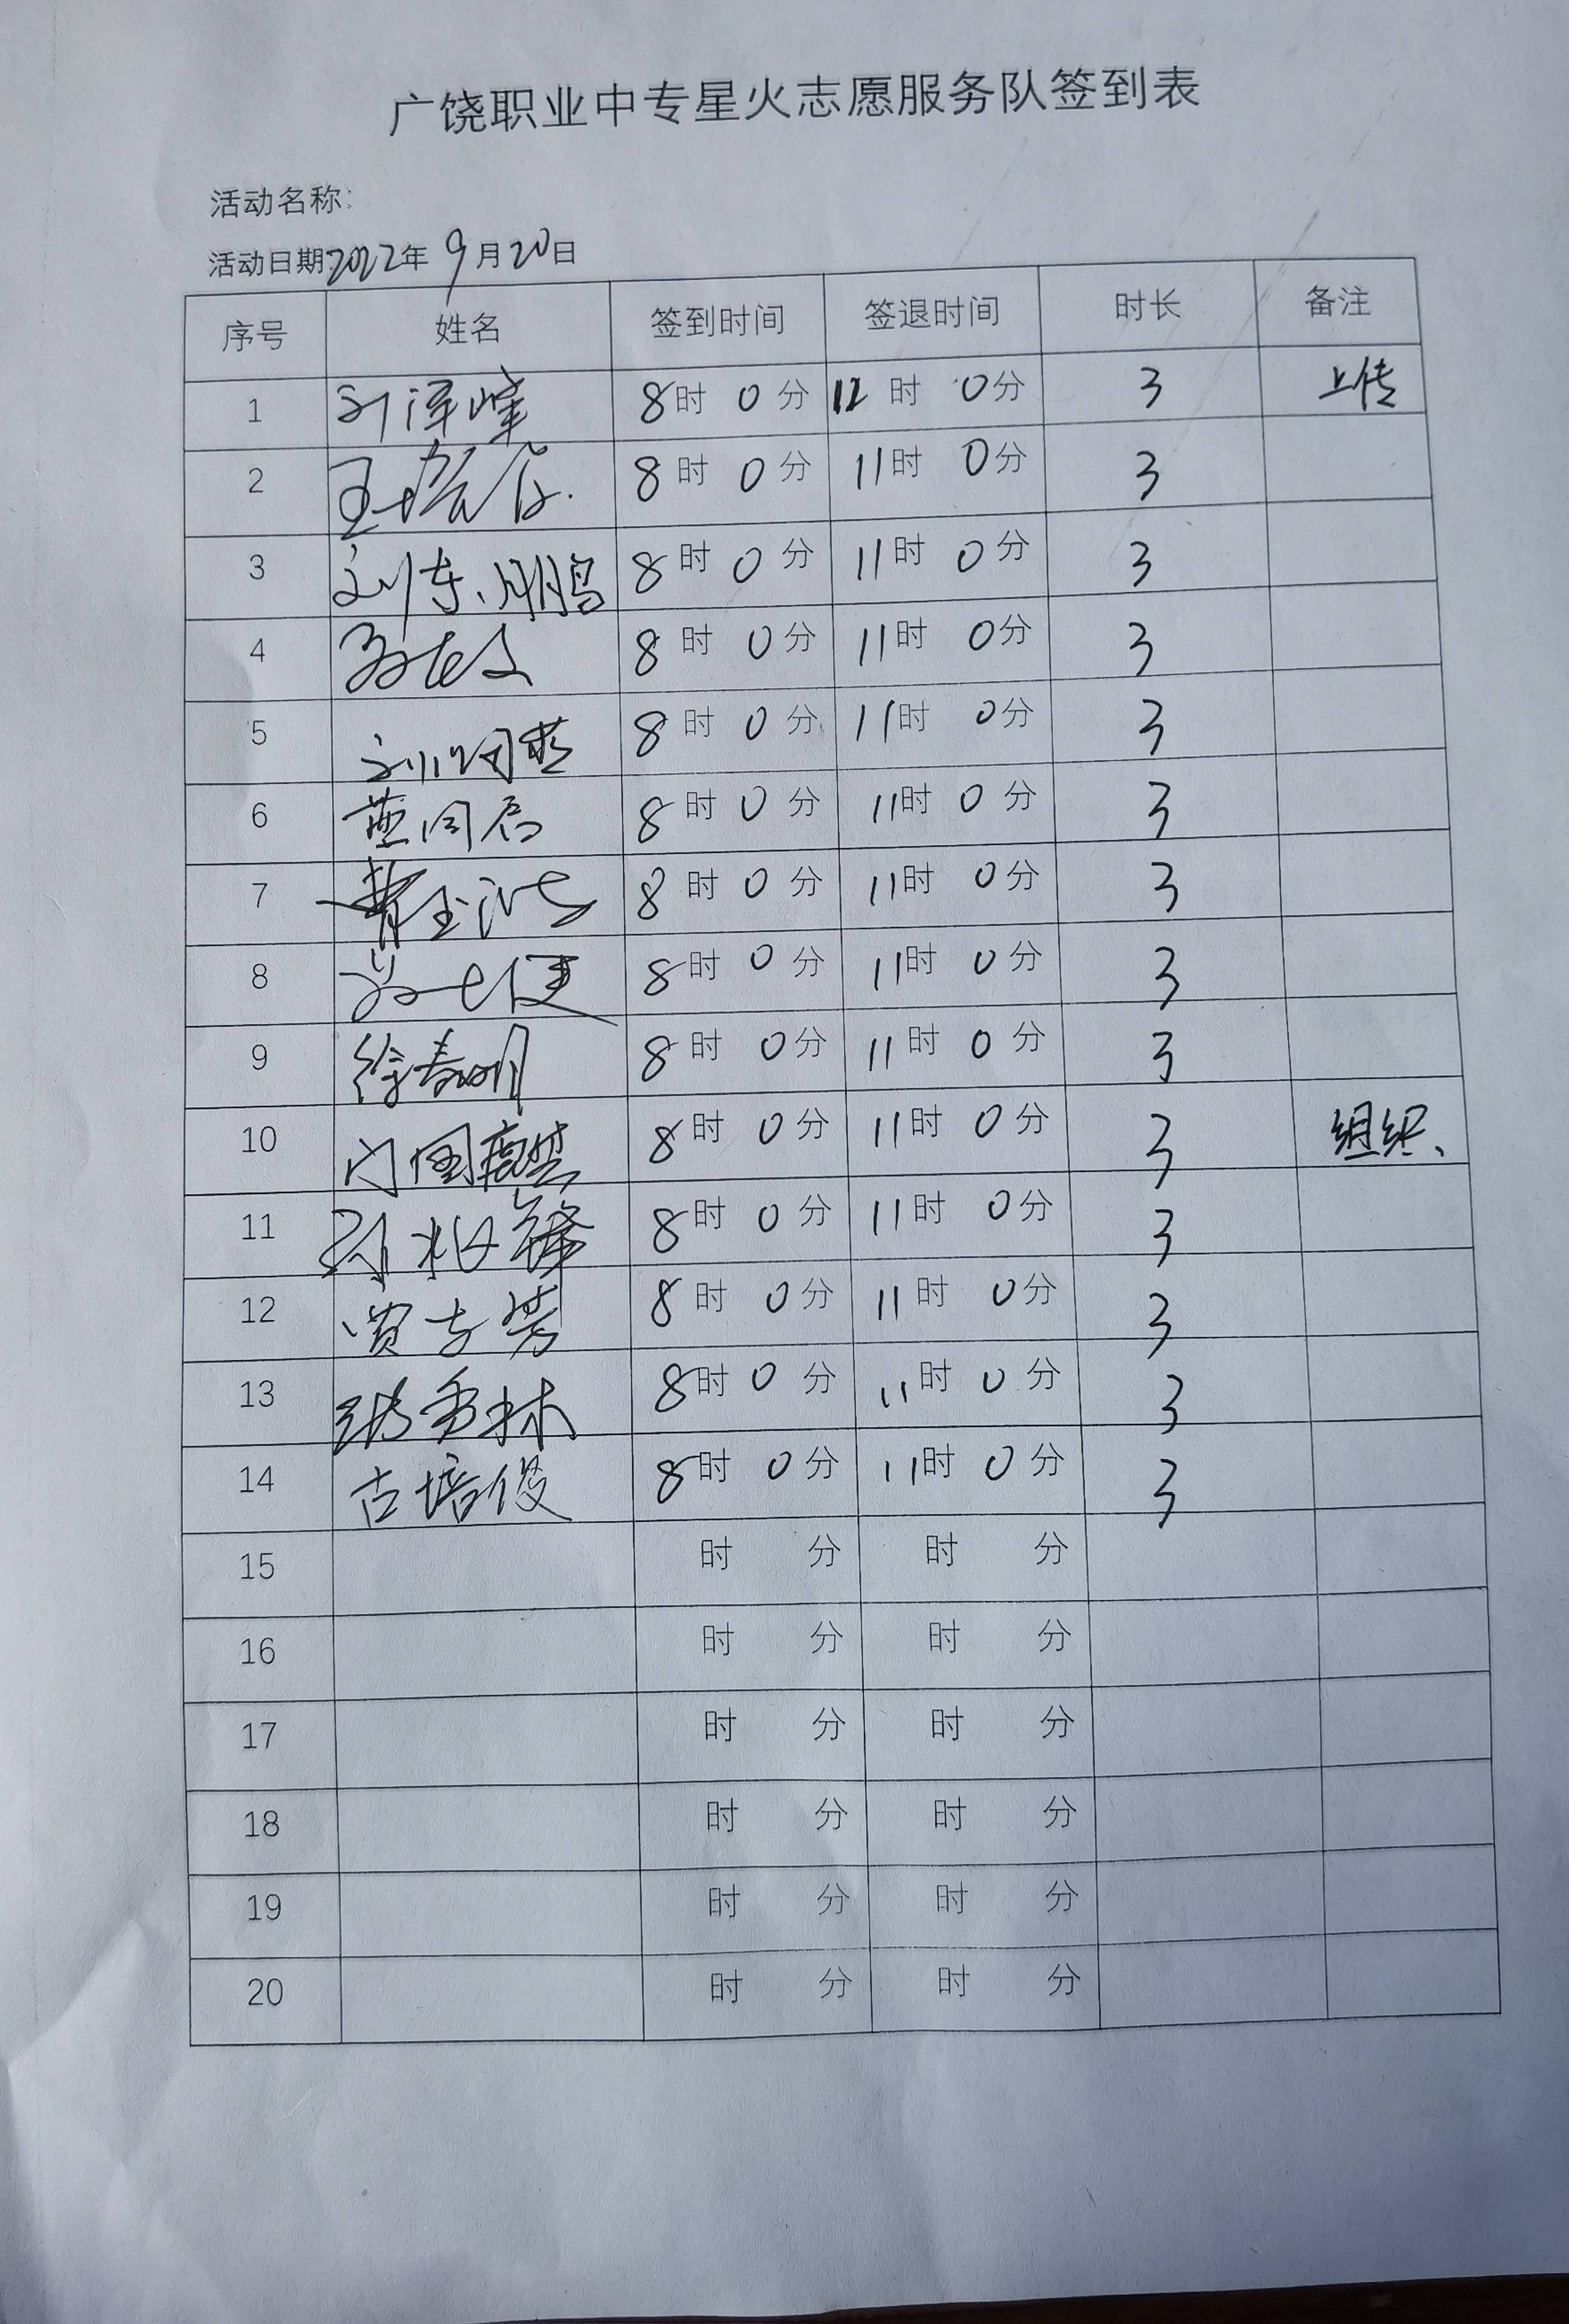 广饶职业中专星火志愿服务队签到表
活动名称：
活动日期：2022年 9月20日
序号 姓名 签到时间 签退时间 时长 备注
1 刘泽峰 8时 0分 12时 0分 3 上传
2 8时 0分 11时 0分 3
3 刘东鹏 8时 0分 11时 0分 3
4 8时 0分 11时 0分 3
5 8时 0分 11时 0分 3
6 燕同君 8时 0分 11时 0分 3
7 8时 0分 11时 0分 3
8 8时 0分 11时 0分 3
9 徐春明 8时 0分 11时 0分 3
10 8时 0分 11时 0分 3 组织、
11 8时 0分 11时 0分 3
12 8时 0分 11时 0分 3
13 8时 0分 11时 0分 3
14 古培俊 8时 0分 11时 0分 3
15 时 分 时 分
16 时 分 时 分
17 时 分 时 分
18 时 分 时 分
19 时 分 时 分
20 时 分 时 分